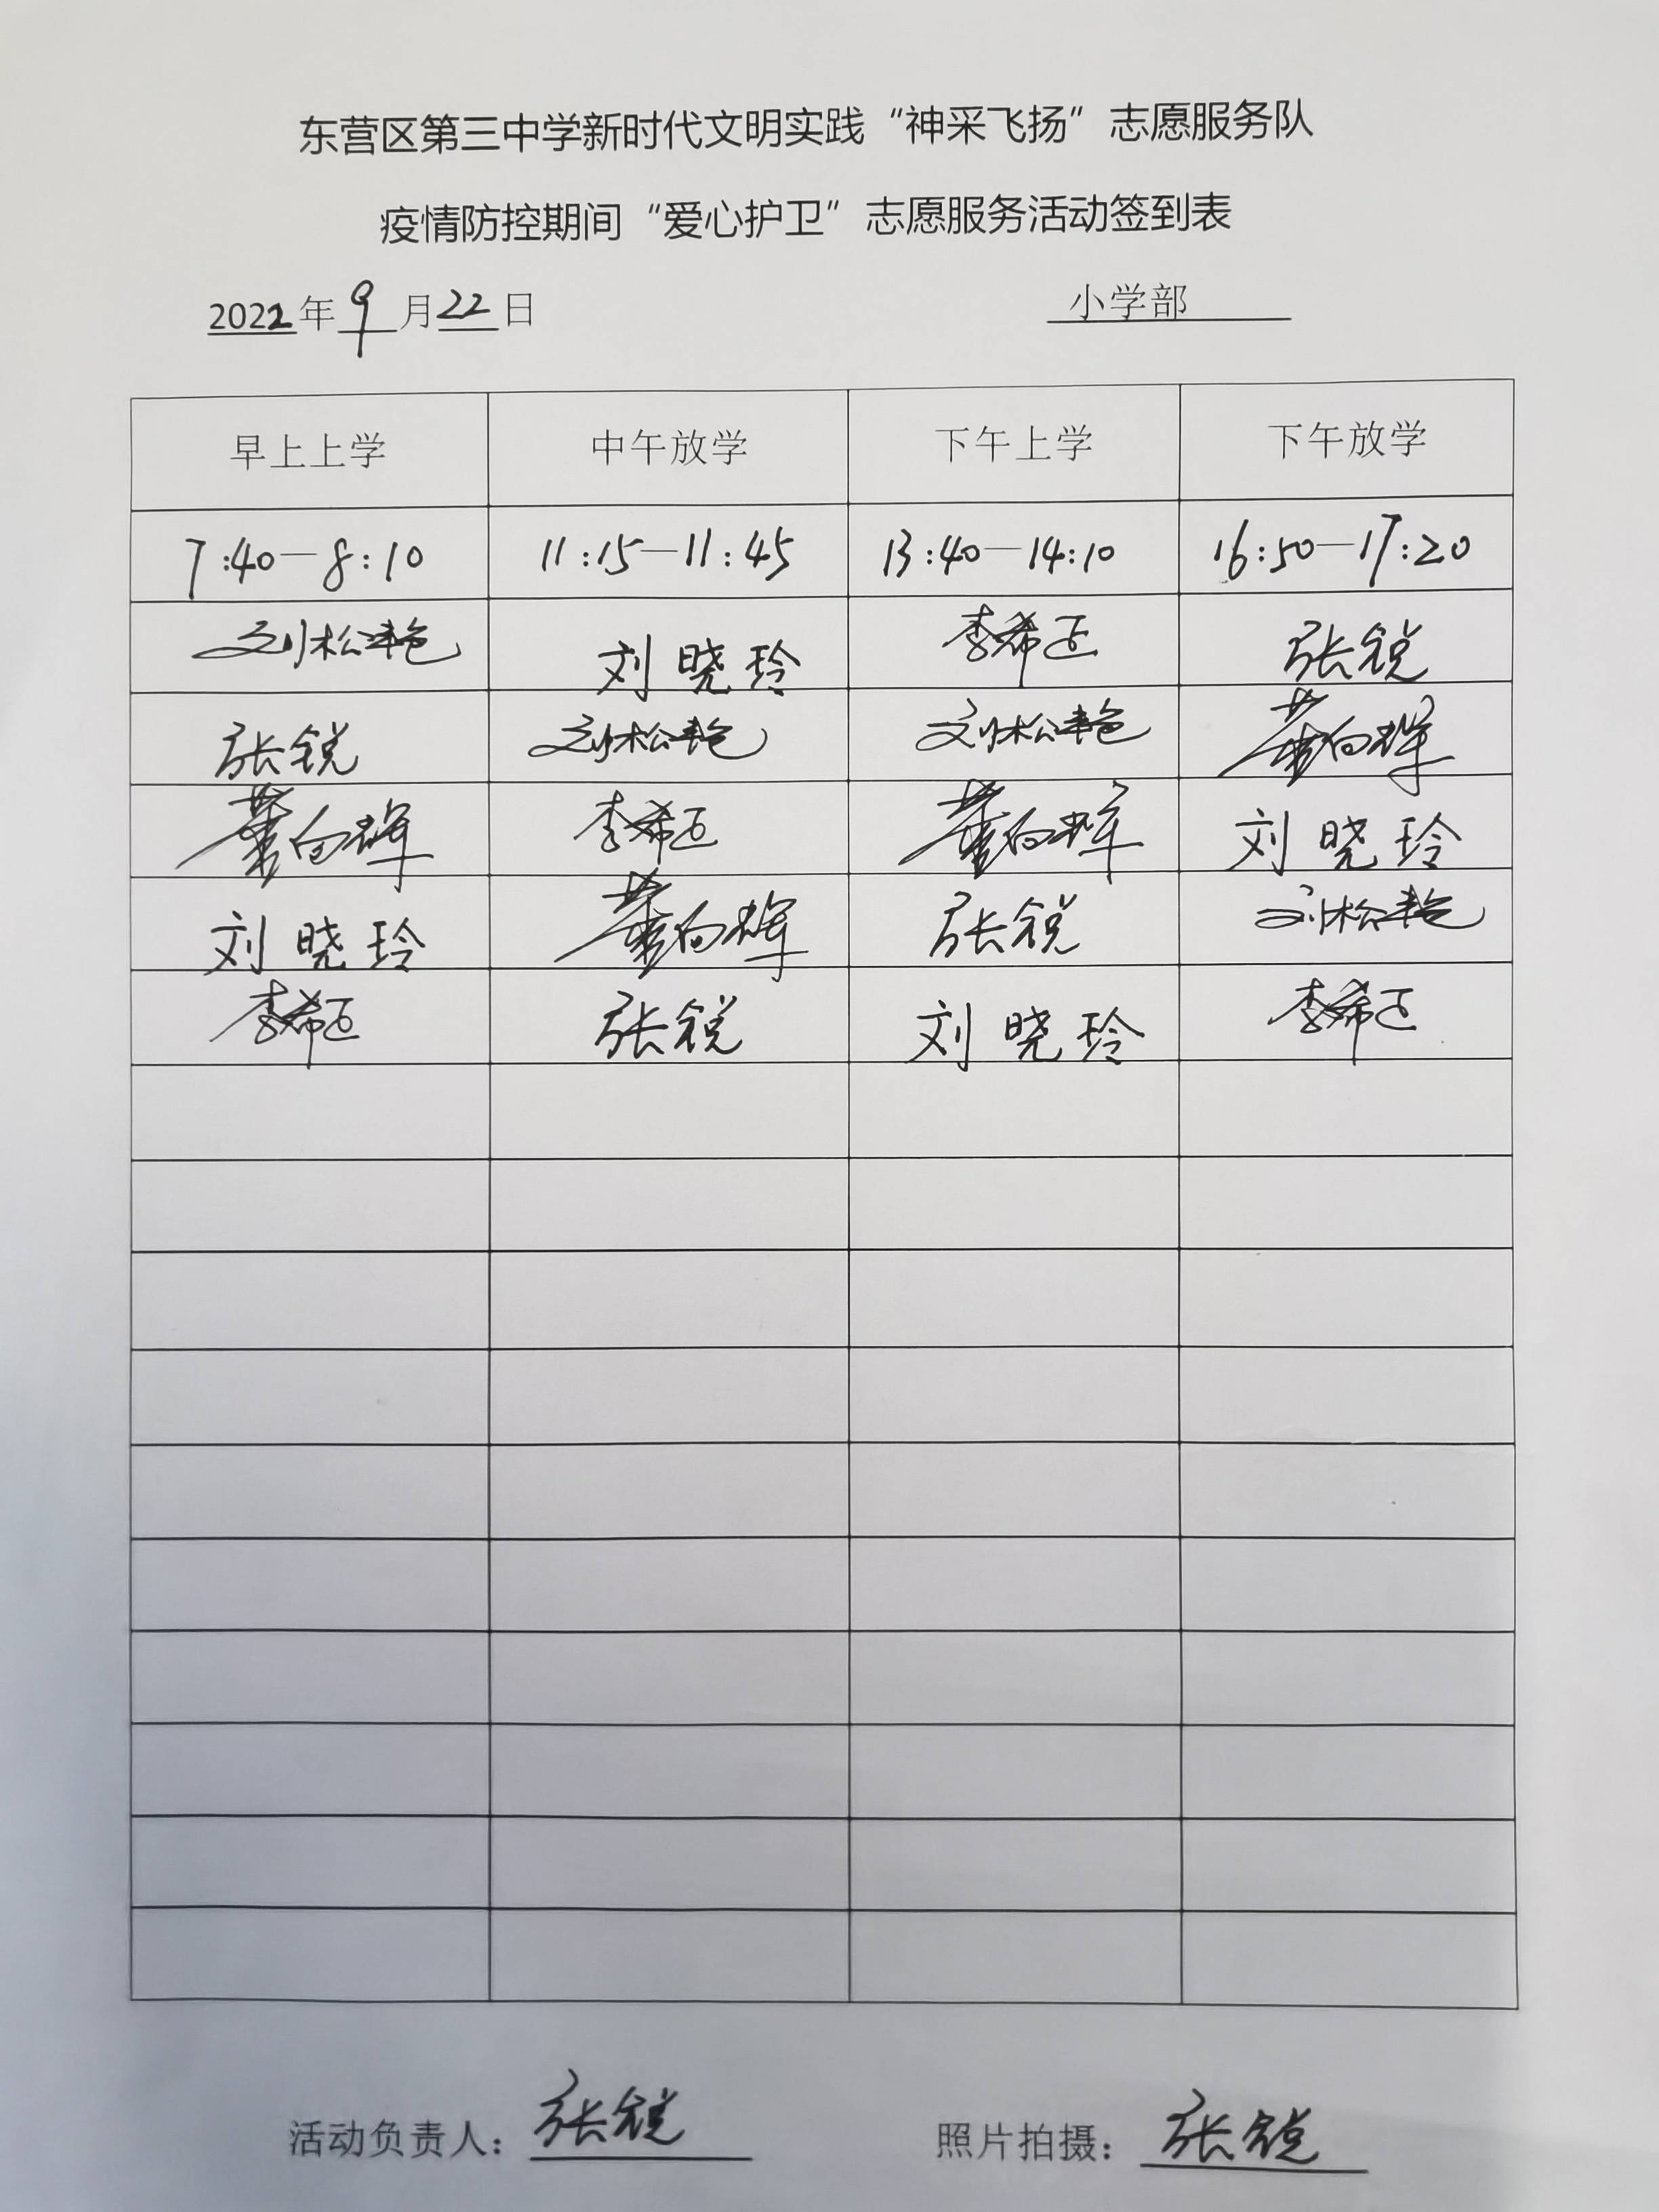 东营区第三中学新时代文明实践“神采飞扬”志愿服务队
疫情防控期间“爱心护卫”志愿服务活动签到表
2022年9月22日 小学部
早上上学 中午放学 下午上学 下午放学
7:40—8:10 11:15—11:45 13:40—14:10 16:50—17:20
刘松艳 刘晓玲 李希 张锐
张锐 刘松艳 刘松艳 董向辉
董向辉 李希 董向辉 刘晓玲
刘晓玲 董向辉 张锐 刘松艳
李希 张锐 刘晓玲 李希
活动负责人：张锐 照片拍摄：张锐